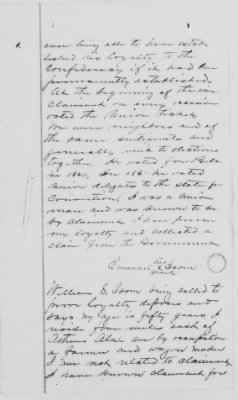 ever being able to have estab
lished his loyalty to the
Confederacy if it had been
permanently established.
At the beginning of the war
claimant on every occasion
voted the Union ticket.
We were neighbors and of
the same sentiments and
generally went to elections
together. He voted for Bell
in 1860, in 1861 he voted
Union delegates to the State
Convention, I was a Union
man and was known to be
by claimant. I have proven
my loyalty and collected a
claim from the Government
Emanuel his x Isom
mark
William E. Isom being called to
prove loyalty deposes and
says my age is fifty years, I
reside four miles east of
Athens Ala. am by occupation
a farmer and wagon maker
I am not related to claimant,
I have known claimant for